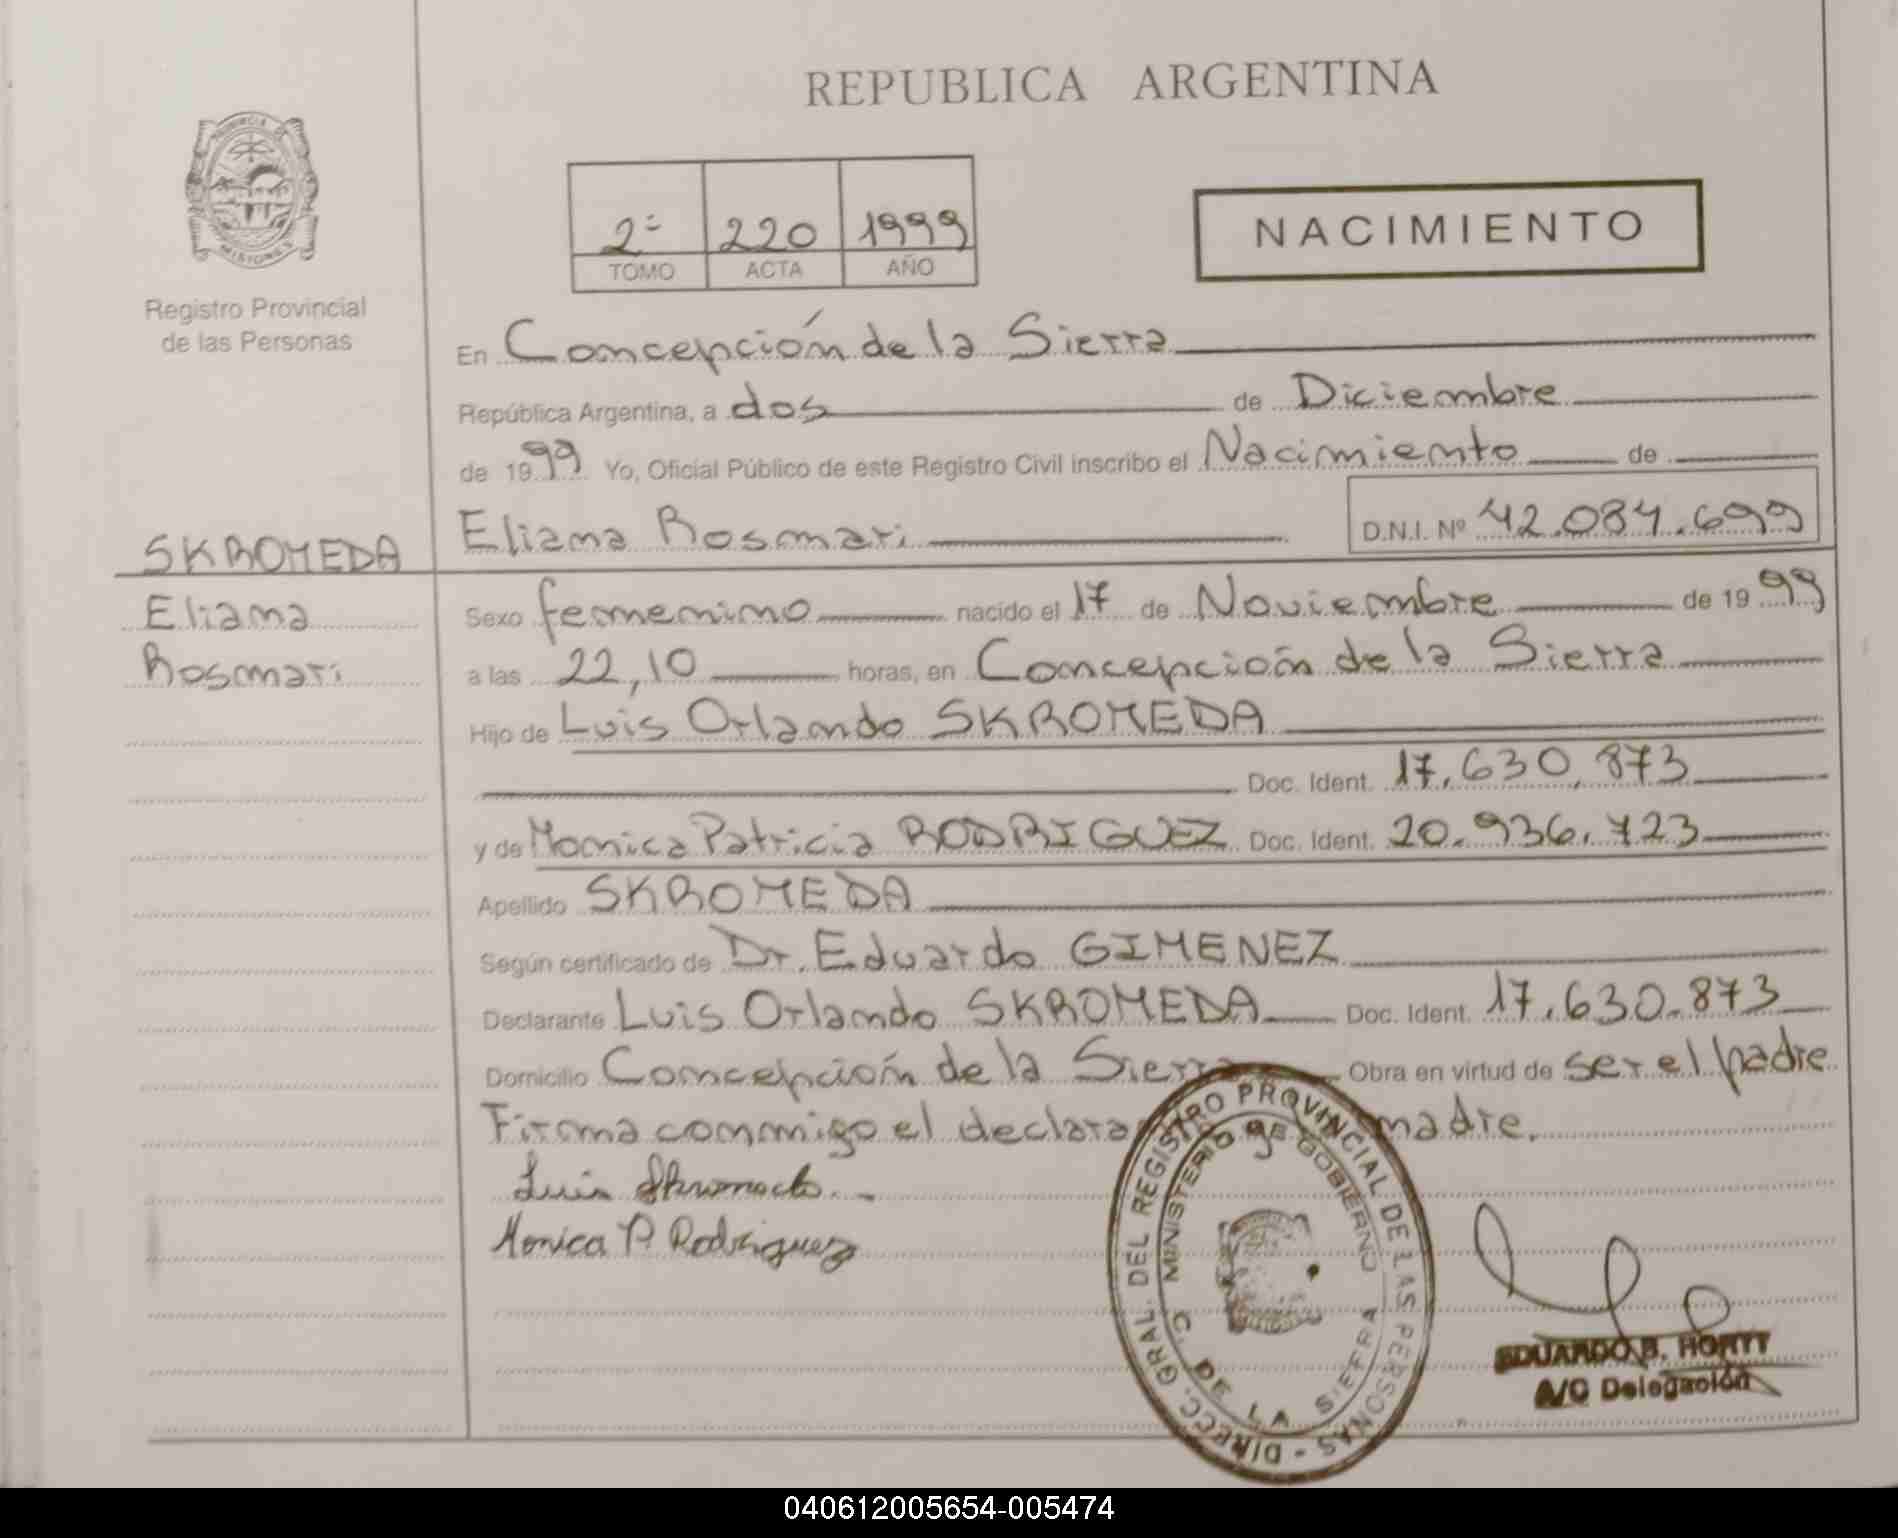 REPUBLICA ARGENTINA
PROVINCIA DE
MISIONES
Registro Provincial
de las Personas
2- 220 1999
TOMO ACTA AÑO
NACIMIENTO
En Concepción de la Sierra
República Argentina, a dos de Diciembre
de 1999 Yo, Oficial Público de este Registro Civil inscribo el Nacimiento de
Eliana Rosmari D.N.I. Nº 42.084.699
SKROMEDA
Eliana
Rosmari
Sexo femenino nacido el 17 de Noviembre de 1999
a las 22,10 horas, en Concepción de la Sierra
Hijo de Luis Orlando SKROMEDA
Doc. Ident. 17.630.873
y de Monica Patricia RODRIGUEZ Doc. Ident. 20.936.723
Apellido SKROMEDA
Según certificado de Dr. Eduardo GIMENEZ
Declarante Luis Orlando SKROMEDA Doc. Ident. 17.630.873
Domicilio Concepción de la Sierra Obra en virtud de ser el padre
Firma conmigo el declara madre.
Luis Skromeda
Monica P. Rodriguez
DIRECC. GRAL. DEL REGISTRO PROVINCIAL DE LAS PERSONAS -
MINISTERIO DE GOBIERNO
C. DE LA SIERRA
EDUARDO B. HORTT
A/C Delegación
040612005654-005474